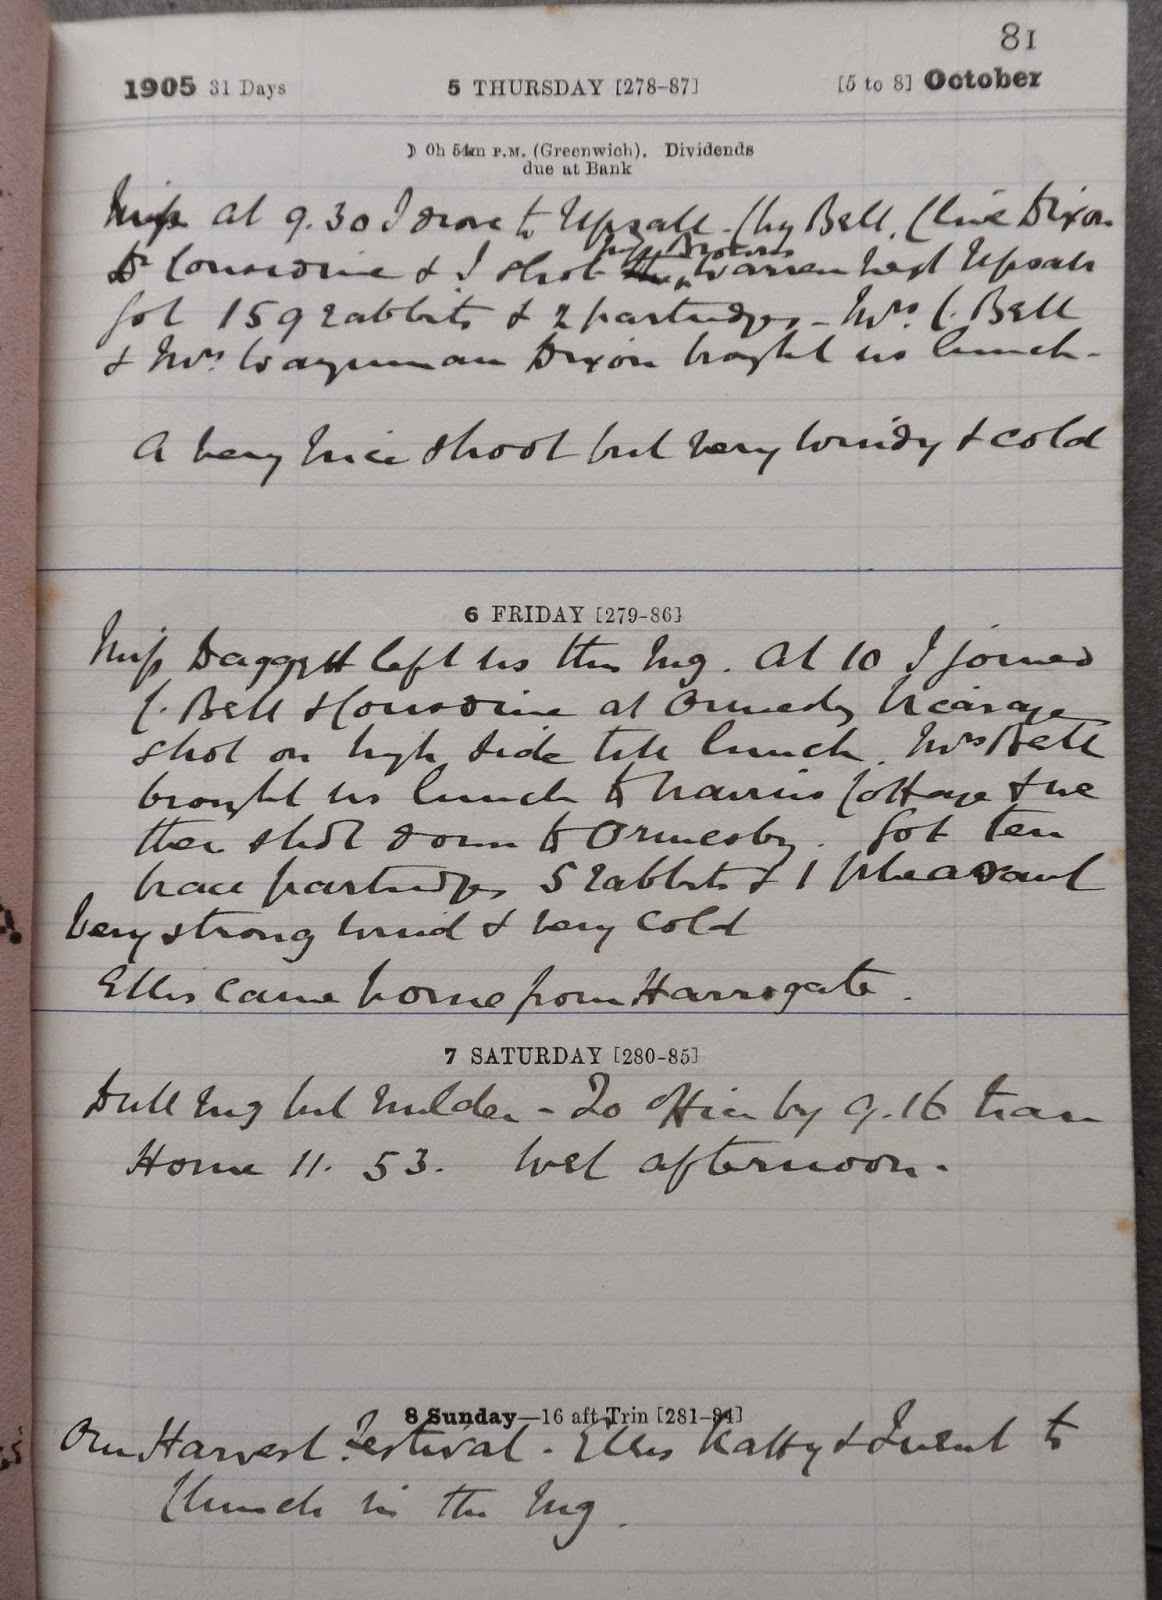 81
1905 31 Days 5 THURSDAY [278-87] [5 to 8] October
☽ 0h 54m P.M. (Greenwich). Dividends
due at Bank
at 9.30 I drove to Upsall - Chy Bell, Clive Dixon
Dr Consodine & I shot Warren West Upsall
Got 159 rabbits & 2 partridges - Mrs C. Bell
& Mrs Waynman Dixon brought us lunch -
A very nice shoot but very windy & cold
6 FRIDAY [279-86]
Miss Daggett left us this Mg. At 10 I joined
C. Bell & Consodine at Ormesby Vicarage
shot on high side till lunch. Mrs Bell
brought us lunch to Cottage & we
then shot down to Ormesby. Got ten
brace partridges 5 rabbits & 1 pheasant
Very strong wind & very cold
Ellis came home from Harrogate.
7 SATURDAY [280-85]
Dull Mg but milder - To Office by 9.16 train
Home 11.53. Wet afternoon.
8 Sunday—16 aft Trin [281-84]
Our Harvest Festival - Ellis Katty & I went to
Church in the Mg.